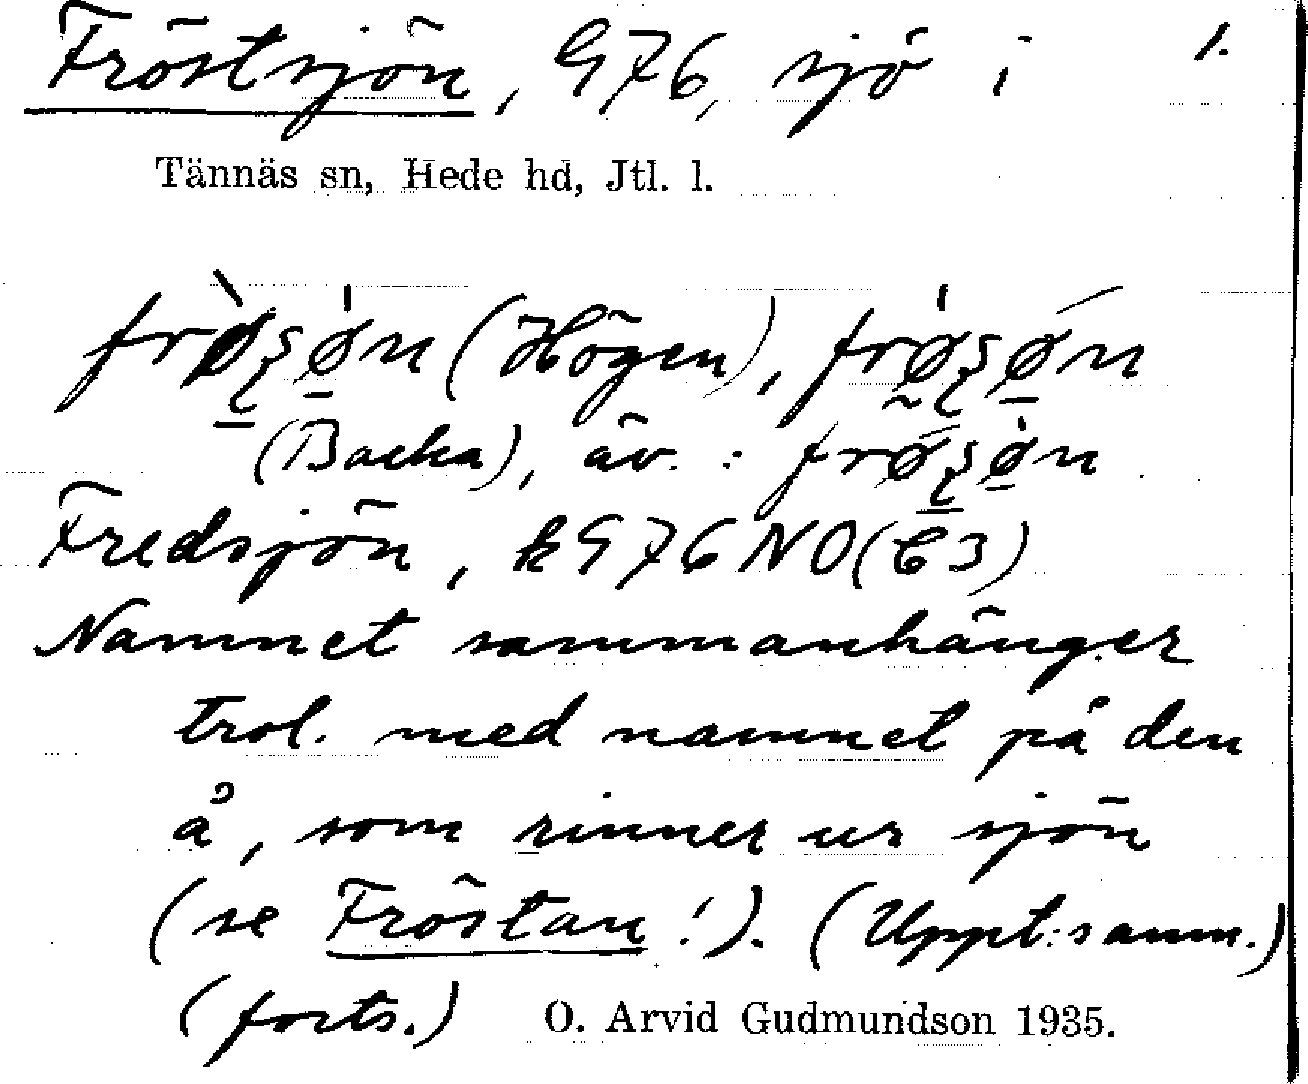 Fröstsjön, 976, sjö i 1.
Tännäs sn, Hede hd, Jtl. l.
(Högen),
(Backa), äv. :
Fredsjön, k976NO(C3)
Namnet sammanhänger
trol. med namnet på den
å, som rinner ur sjön
(se Fröstan!). (Uppt:s anm.)
(forts.) O. Arvid Gudmundson 1935.